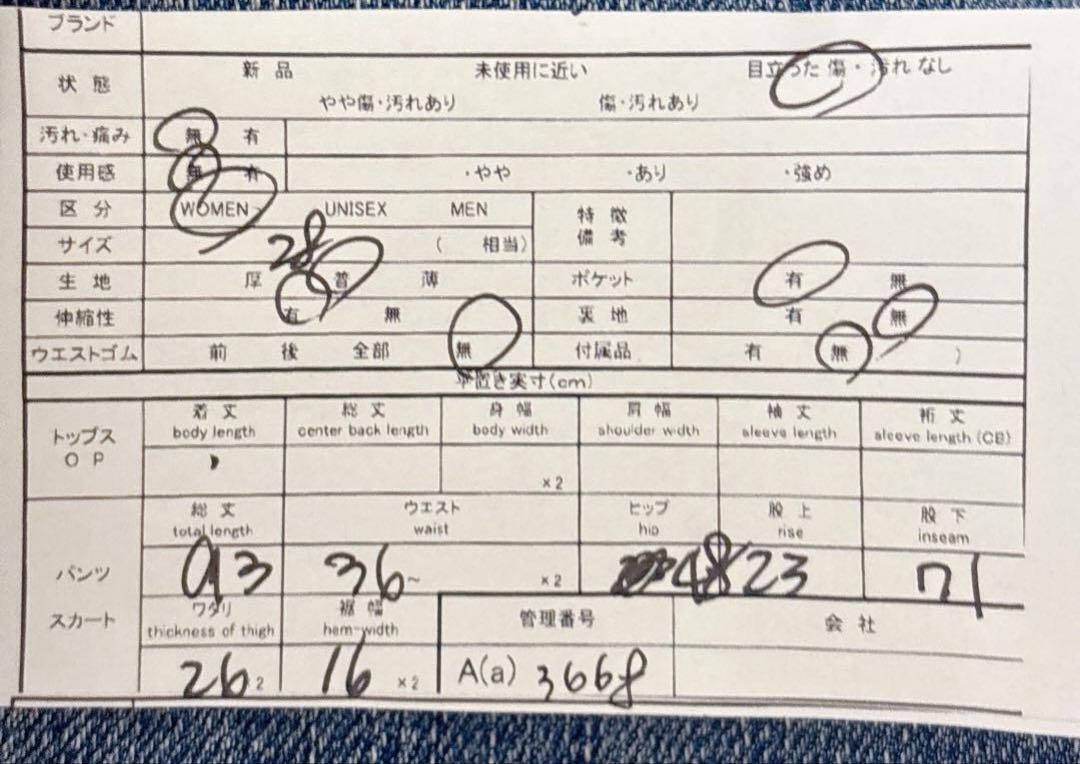 ブランド
状態 新品 未使用に近い 目立った傷・汚れなし
やや傷・汚れあり 傷・汚れあり
汚れ・痛み 無 有
使用感 無 有 ・やや ・あり ・強め
区分 WOMEN UNISEX MEN 特徴備考
サイズ 28 ( 相当)
生地 厚 普 薄 ポケット 有 無
伸縮性 有 無 裏地 有 無
ウエストゴム 前 後 全部 無 付属品 有 無 )
平置き実寸(cm)
着丈 総丈 身幅 肩幅 袖丈 裄丈
body length center back length body width shoulder width sleeve length sleeve length (CB)
トップス
OP
×2
総丈 ウエスト ヒップ 股上 股下
total length waist hip rise inseam
パンツ 93 36~ ×2 48 23 71
スカート ワタリ 裾幅 管理番号 会社
thickness of thigh hem-width
26 2 16 ×2 A(a) 3668